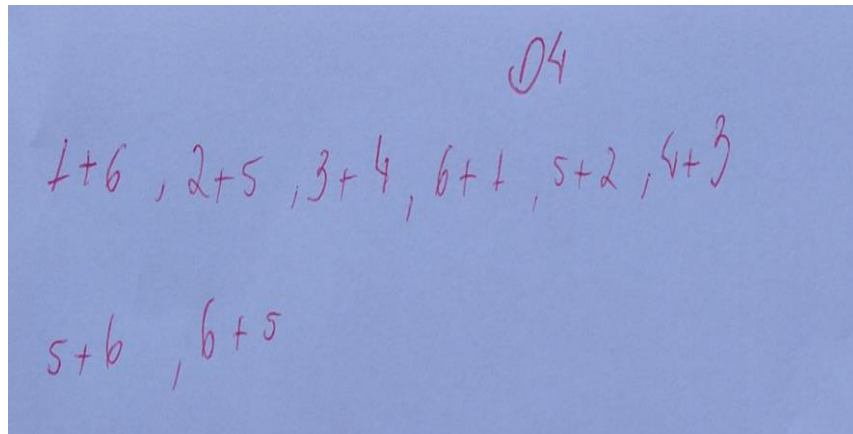 D4
1+6 , 2+5 , 3+4 , 6+1 , 5+2 , 4+3
5+6 , 6+5